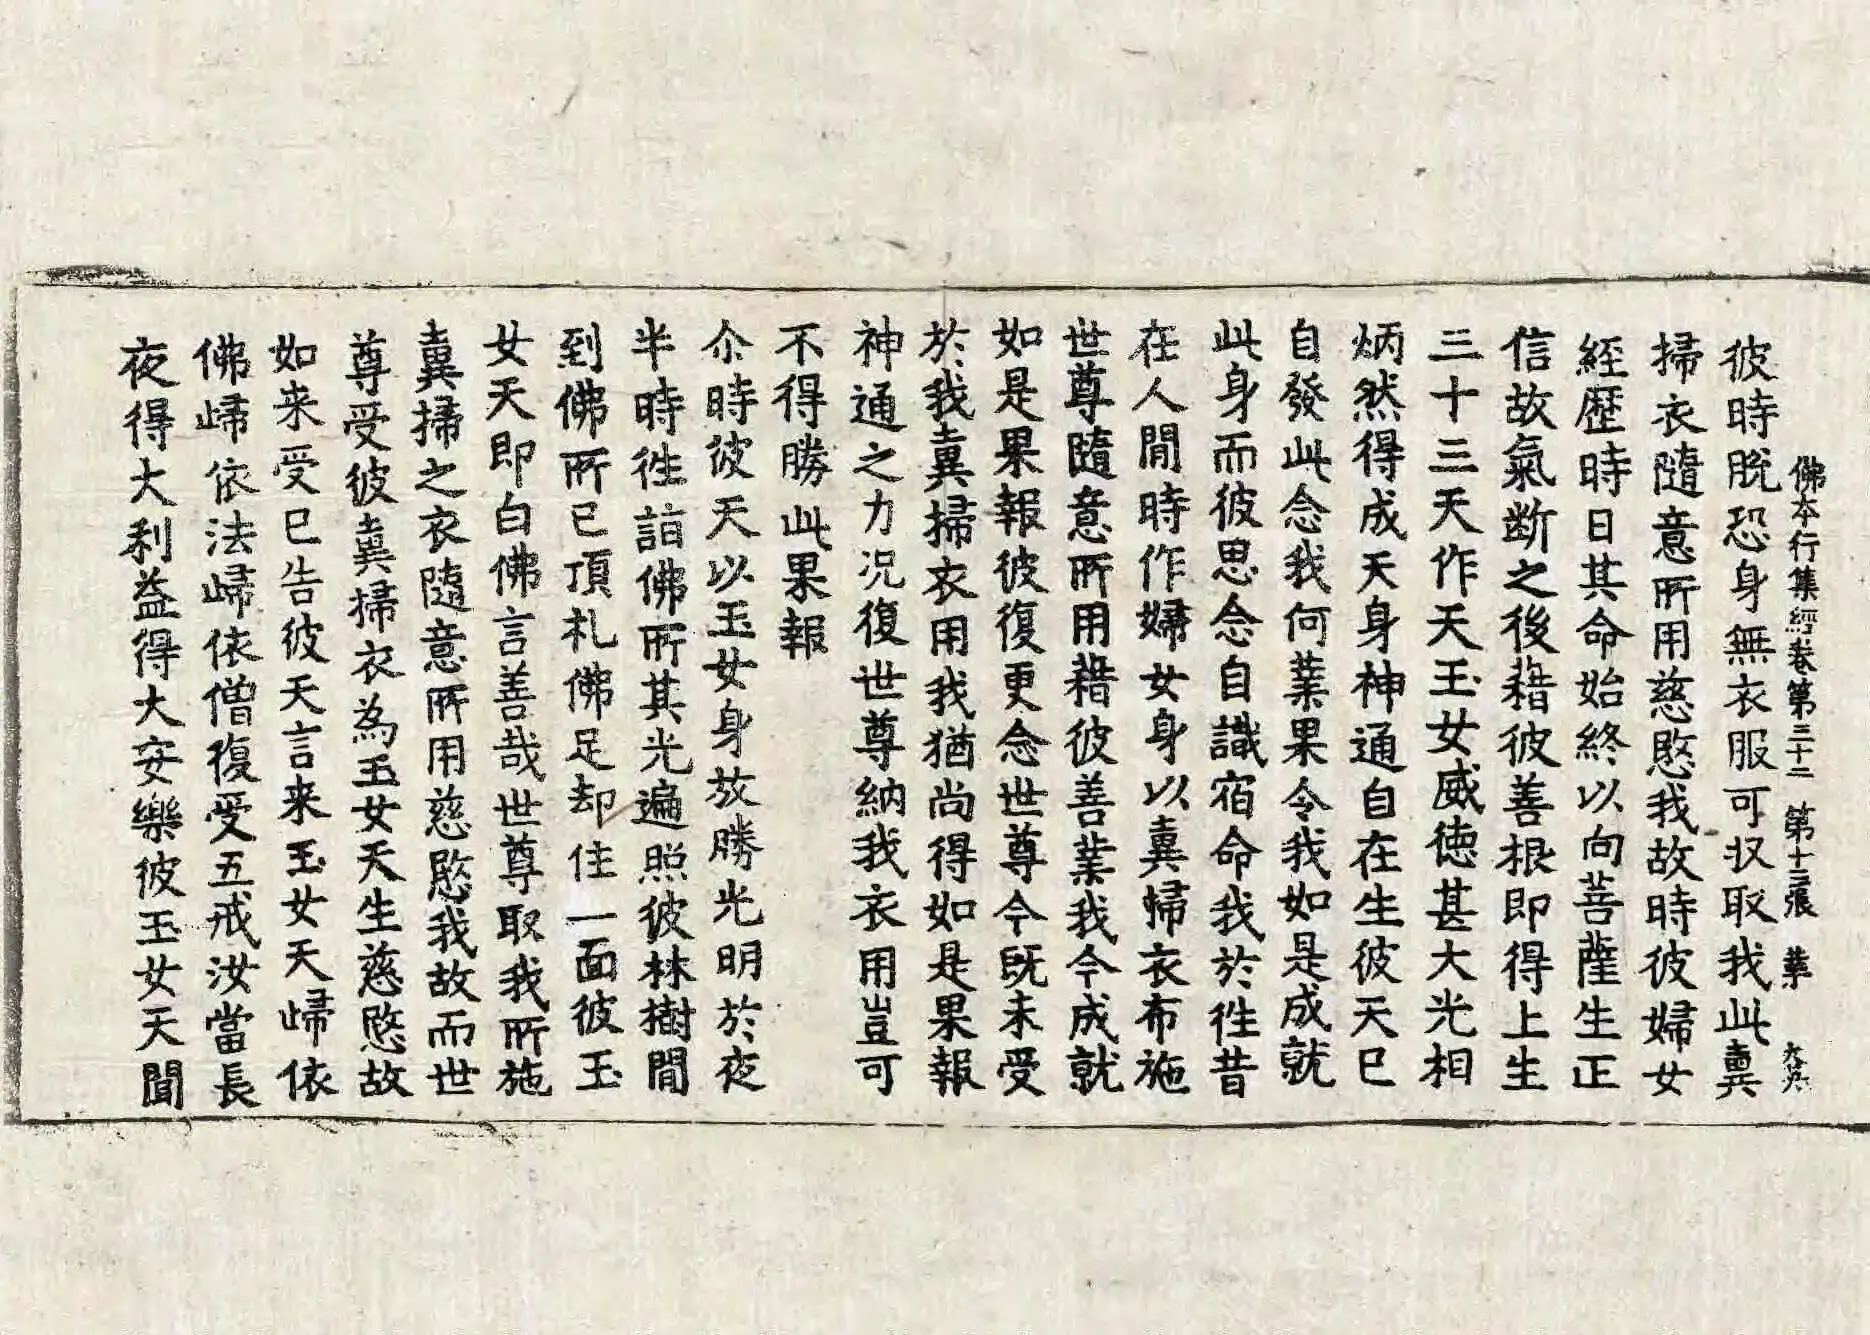 佛本行集經卷第三十二 第十三張 華
彼時脫恐身無衣服可収取我此糞
掃衣隨意所用慈愍我故時彼婦女
經歷時日其命始終以向菩薩生正
信故氣斷之後藉彼善根即得上生
三十三天作天玉女威德甚大光相
炳然得成天身神通自在生彼天已
自發此念我何業果令我如是成就
此身而彼思念自識宿命我於往昔
在人間時作婦女身以糞掃衣布施
世尊隨意所用藉彼善業我今成就
如是果報彼復更念世尊今既未受
於我糞掃衣用我猶尚得如是果報
神通之力况復世尊納我衣用豈可
不得勝此果報
尒時彼天以玉女身放勝光明於夜
半時往詣佛所其光遍照彼林樹間
到佛所已頂礼佛足却住一面彼玉
女天即白佛言善哉世尊取我所施
糞掃之衣隨意所用慈愍我故而世
尊受彼糞掃衣為玉女天生慈愍故
如来受已告彼天言来玉女天歸依
佛歸依法歸依僧復受五戒汝當長
夜得大利益得大安樂彼玉女天聞